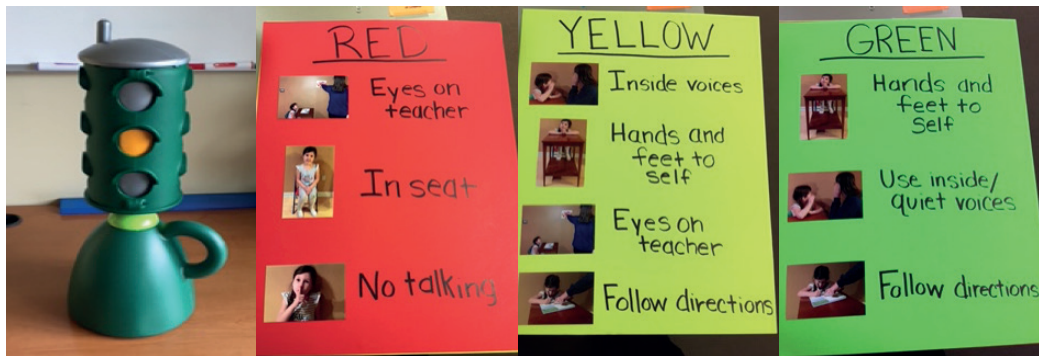 RED
Eyes on
teacher
In seat
No talking
YELLOW
Inside voices
Hands and
feet to
self
Eyes on
teacher
Follow directions
GREEN
Hands and
feet to
self
Use inside/
quiet voices
Follow directions